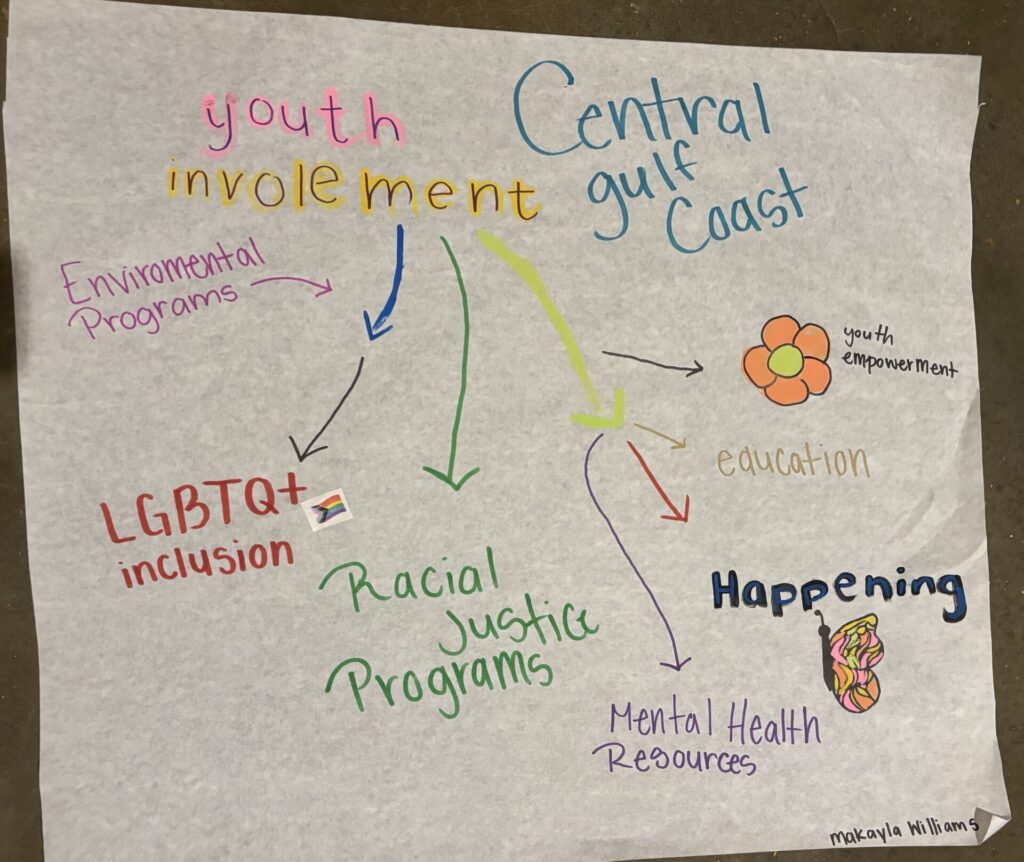 youth
involement
Central
gulf
Coast
Enviromental
Programs
youth
empowerment
education
LGBTQ+
inclusion
Racial
Justice
Programs
Happening
Mental Health
Resources
makayla Williams